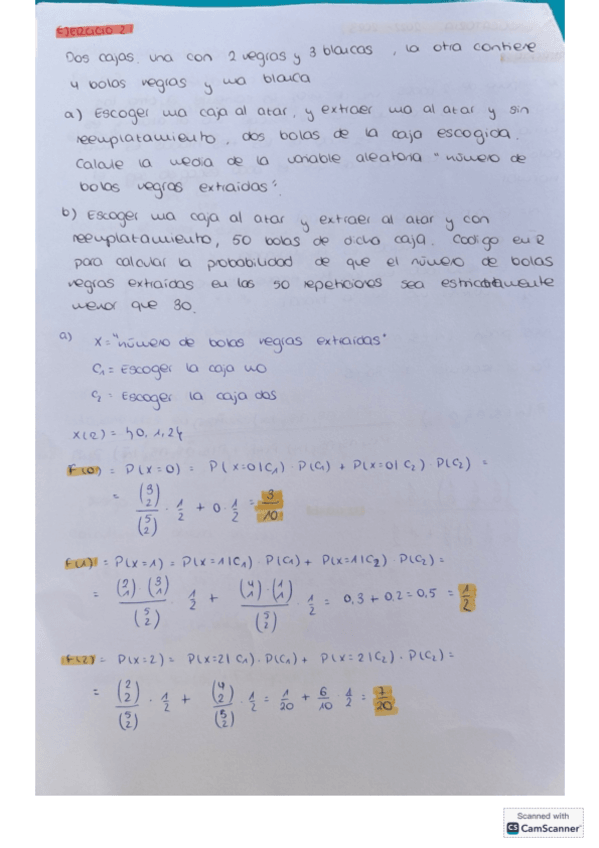 EJERCICIO 2
Dos cajas, una con 2 negras y 3 blancas, la otra contiene
4 bolas negras y una blanca
a) Escoger una caja al azar, y extraer una al azar y sin
reemplazamiento, dos bolas de la caja escogida.
Calcule la media de la variable aleatoria "número de
bolas negras extraídas".
b) Escoger una caja al azar y extraer al azar y con
reemplazamiento, 50 bolas de dicha caja. Código en R
para calcular la probabilidad de que el número de bolas
negras extraídas en las 50 repeticiones sea estrictamente
menor que 30.
a) X = "número de bolas negras extraídas"
C₁ = Escoger la caja uno
C₂ = Escoger la caja dos
X(Ω) = {0, 1, 2}
F(0) = P(X=0) = P(X=0|C₁) · P(C₁) + P(X=0|C₂) · P(C₂) =
= (3 2)/(5 2) · 1/2 + 0 · 1/2 = 3/10
F(1) = P(X=1) = P(X=1|C₁) · P(C₁) + P(X=1|C₂) · P(C₂) =
= (2 1) · (3 1)/(5 2) · 1/2 + (4 1) · (1 1)/(5 2) · 1/2 = 0,3 + 0,2 = 0,5 = 1/2
F(2) = P(X=2) = P(X=2|C₁) · P(C₁) + P(X=2|C₂) · P(C₂) =
= (2 2)/(5 2) · 1/2 + (4 2)/(5 2) · 1/2 = 1/20 + 6/10 · 1/2 = 7/20
Scanned with
CS CamScanner